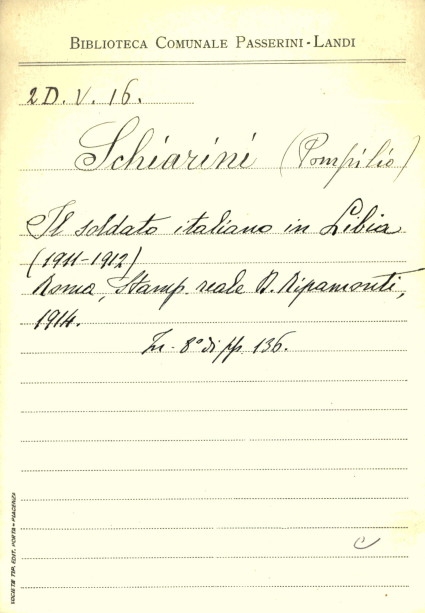 BIBLIOTECA COMUNALE PASSERINI-LANDI
2D. V. 16.
Schiarini (Pompilio)
Il soldato italiano in Libia
(1911-1912)
Roma, Stamp. reale D. Ripamonti,
1914.
In-8° di pp 136.
SOCIETÀ TIP. EDIT. PORTA - PIACENZA